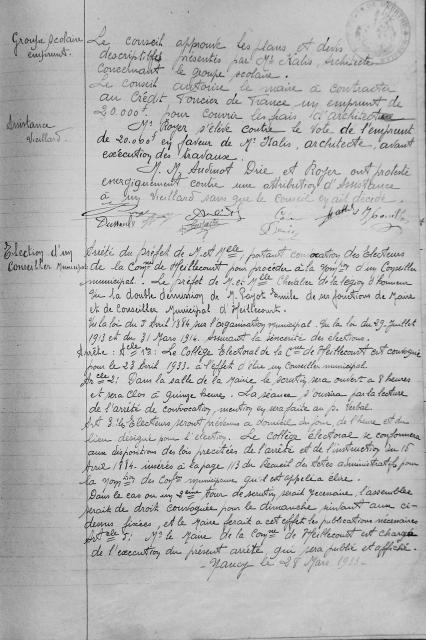 Groupe scolaire
emprunt.
Le conseil approuve les plans et devis
descriptibles présentés par Mr Kalis, architecte
concernant le groupe scolaire.
Le conseil autorise le maire à contracter
au Crédit Foncier de France un emprunt de
20.000f. pour couvrir les frais d'architecture
Assistance
Vieillard.
Mr Royer s'élève contre le vote de l'emprunt
de 20.000f en faveur de Mr Kalis, architecte, avant
exécution des travaux.
M. M. Audinot Drie, et Royer ont protesté
énergiquement contre une attribution d'assistance
à un vieillard sans que le conseil ait décidé.
Election d'un
Conseiller Municipal
Arrêté du Préfet de M. et Melle, portant convocation des Electeurs
de la Comne de Heillecourt pour procéder à la nomion d'un Conseiller
municipal. Le préfet de M. et Melle Chevalier de la légion d'honneur
Vu la double démission de M. Pajot Emile de ses fonctions de Maire
et de Conseiller Municipal d'Heillecourt.
Vu la loi du 5 Avril 1884, sur l'organisation municipal. Vu la loi du 29 Juillet
1913 et du 31 Mars 1914. assurant la sincérité des élections.
Arrête: Acle 1er: Le Collège Electoral de la Cne de Heillecourt est convoqué
pour le 23 Avril 1933. à l'effet d'élire un Conseiller municipal.
Arcle 2: Dans la salle de la Mairie le scrutin sera ouvert à 8 heures
et sera clos à quinze heure. La séance s'ouvrira par la lecture
de l'arrêté de convocation, mention en sera faite au p. verbal.
Art 3: Les Electeurs seront prévenus à domicile du jour, de l'heure et du
lieu désigné pour l'élection. Le Collège électoral se conformera
aux disposition des lois précitées de l'arrêté et de l'instruction du 15
Avril 1884. insérés à la page 113 du Recueil des Actes administratifs pour
la nomion des Conrs municipaux qu'il est appelé à élire.
Dans le cas ou un 2ème tour de scrutin serait nécessaire, l'assemblée
serait de droit convoquée pour le dimanche suivant aux ci-
dessus fixées, et le Maire ferait à cet effet les publications nécessaires
Artcle 5: Mr le Maire de la Comne de Heillecourt est chargé
de l'exécution du présent arrêté, qui sera publié et affiché.
- Nancy le 28 Mars 1933 -